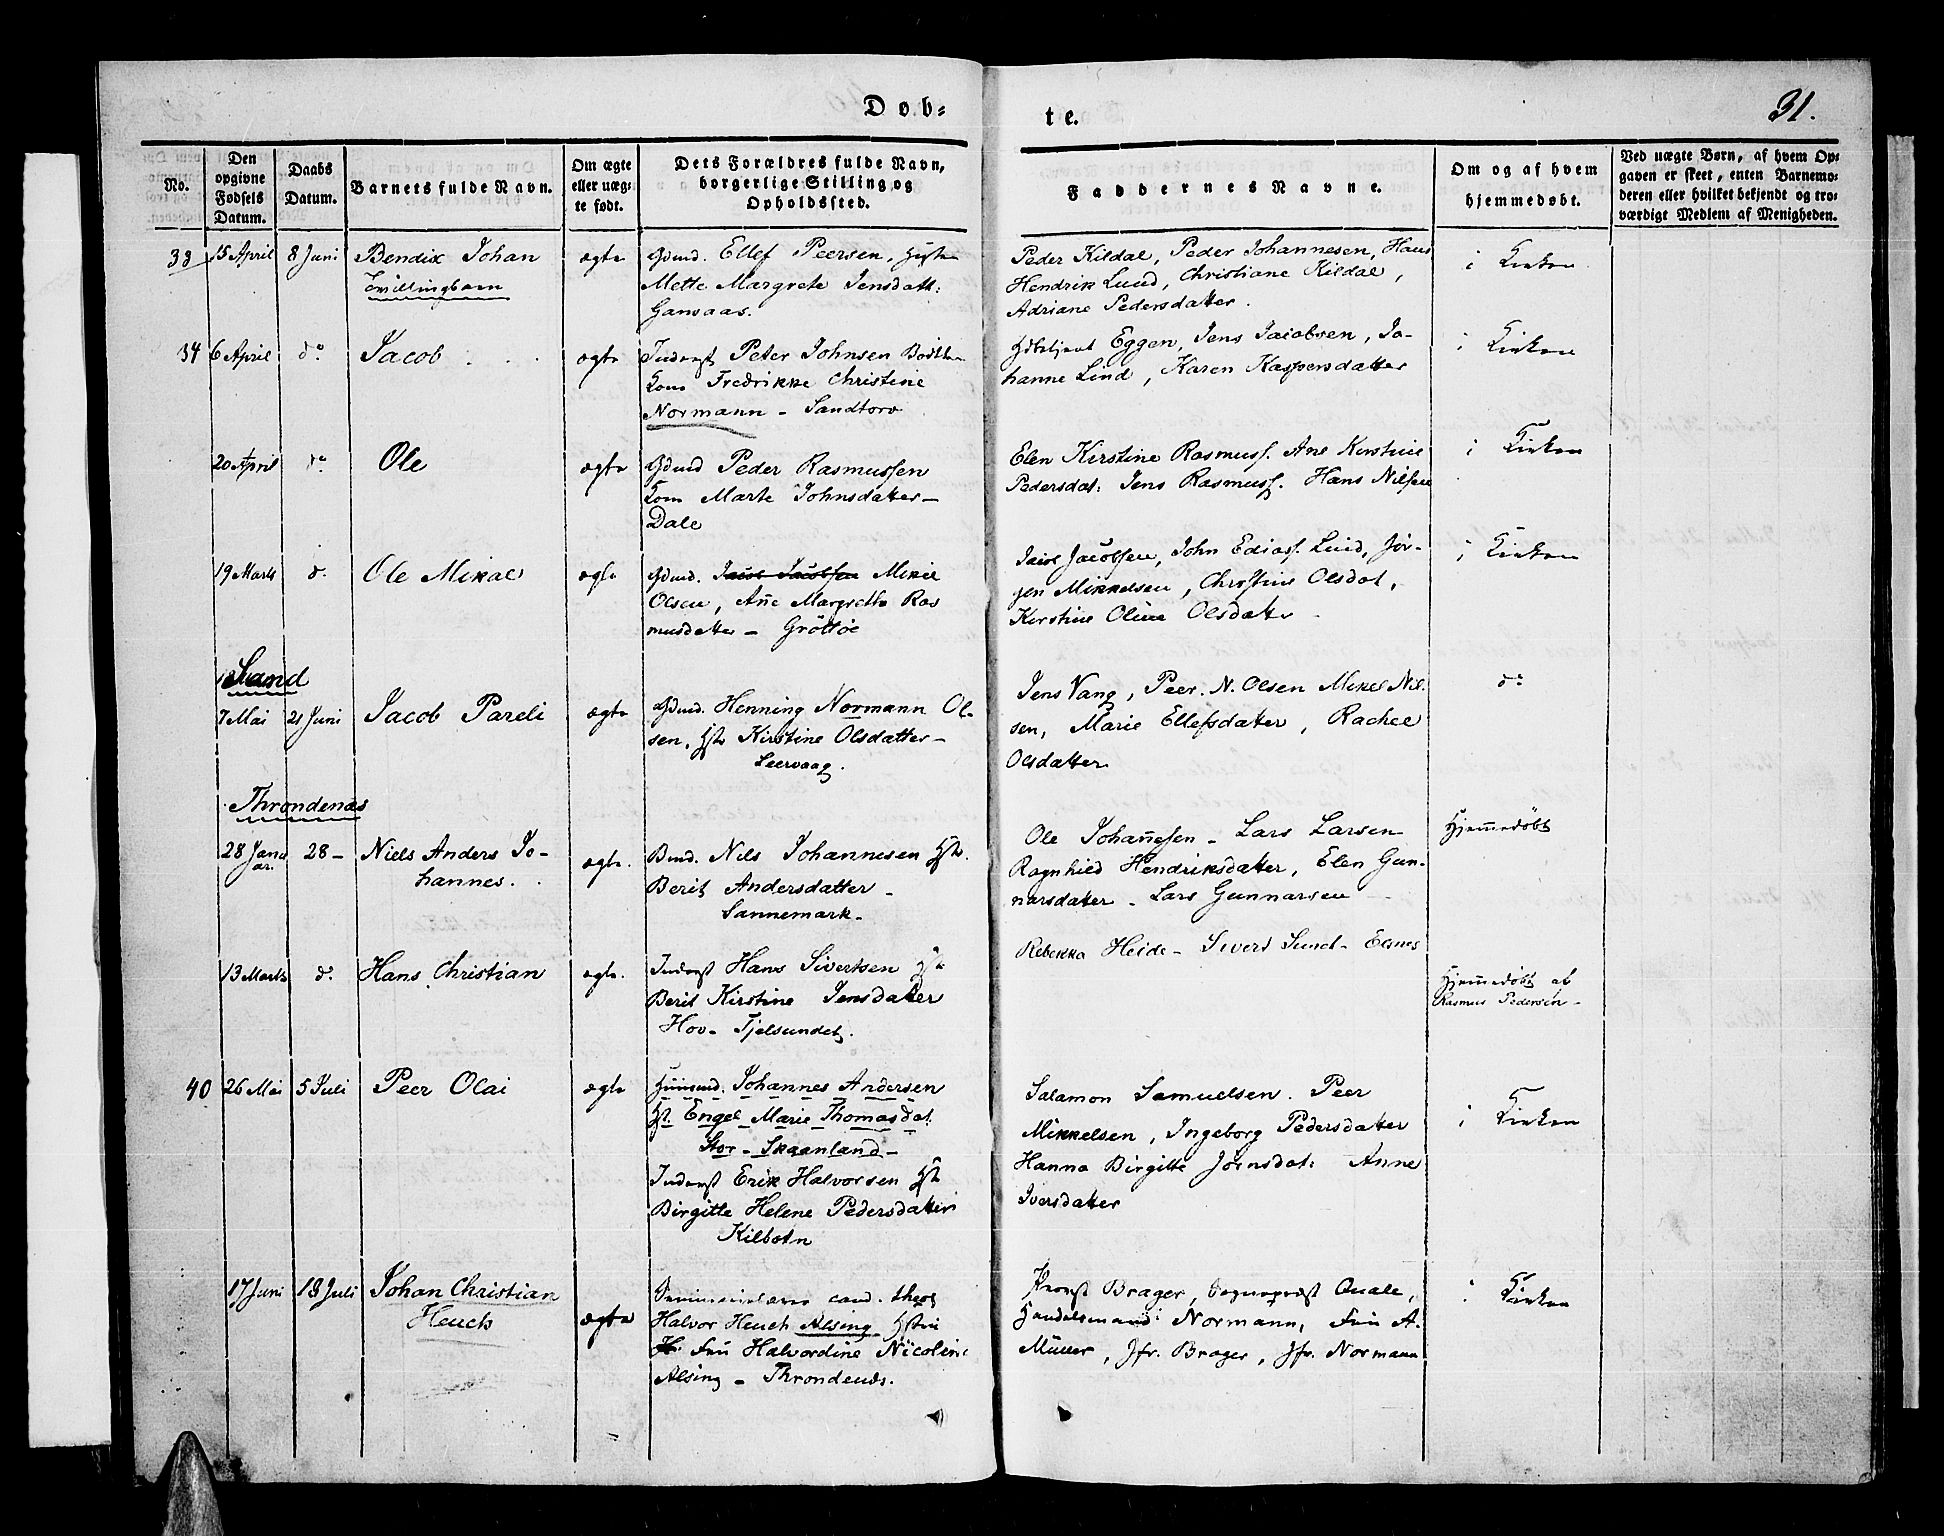 Døb=
te.
31.
No.
Den opgivne Fødsels Datum.
Daabs Datum.
Barnets fulde Navn.
Om ægte eller uægte født.
Dets Forældres fulde Navn, borgerlige Stilling og Opholdssted.
Faddernes Navne.
Om og af hvem hjemmedøbt.
Ved uægte Børn, af hvem Opgaven er skeet, enten Barnemoderen eller hvilket bekjendt og troværdigt Medlem af Menigheden.
33 15 April 8 Juni Bendix Johan
Tvillingbarn
ægte
Gdmd. Ellef Peersen, Hustr
Mette Margrete Jensdatt:
Gansaas.
Peder Kildal, Peder Johannesen, Hans
Hendrik Lund, Christiane Kildal,
Adriane Pedersdatter.
i Kirken
34 6 April do Jacob
ægte
Inderst Peter Johnsen
Kone Fredrikke Christine
Normann - Sandtorv
Eggen, Jens Jacobsen, Jo-
hanne Lind, Karen Kaspersdatter
i Kirken
20 April do Ole
ægte
Gdmd Peder Rasmussen
Kone Marte Johnsdatter -
Dale
Elen Kirstine Rasmuss. Ane Kirstine
Pedersdat: Jens Rasmuss. Hans Nilsen
i Kirken
19 Marts do Ole Mikal
ægte
Gdmd. Jacob Jacobsen Mikel
Olsen, Ane Margrethe Ras
musdatter - Gröttöe
Jacob Jacobsen, John Edias. Lund, Jör-
gen Mikkelsen, Christine Olsdat,
Kirstine Oline Olsdatter
i Kirken
Sand
7 Mai 21 Juni Jacob Pareli
ægte
Gdmd. Henning Normann Ol-
sen, Hstr Kirstine Olsdatter -
Leervaag.
Jens Vang, Peer N. Olsen Mikel Nil-
sen, Marie Ellefsdatter, Rachel
Olsdatter
do
Throndenæs
28 Janu
ar. 28 - Niels Anders Jo-
hannes.
ægte.
Bmd. Nils Johannesen Hstr.
Berit Andersdatter -
Sannemark -
Ole Johannesen - Lars Larsen
Ragnhild Hendriksdatter, Elen Gun-
narsdatter - Lars Gunnarsen
Hjemmedöbt
13 Marts do Hans Christian
ægte.
Inderst Hans Sivertsen Hstr
Berit Kirstine Jensdatter
Hov - Tjelsundet.
Rebekka Heide - Sivert Sund -
Hjemmedöbt af
Rasmus Pedersen -
40 26 Mai 5 Juli Peer Olai
ægte
Huusmd. Johannes Andersen
Hst. Engel Marie Thomasdat.
Stor - Skaanland -
Inderst Erik Halvorsen Hstr
Birgitte Helene Pedersdatter
Kilbotn
Salamon Samuelsen. Peer
Mikkelsen, Ingeborg Pedersdatter
Hanna Birgitte Jörnsdat: Anne
Iversdatter
i Kirken
17 Juni 18 Juli Johan Christian
Heuch
ægte
Seminarielærer cand. theol
Halvor Heuch Alsing Hstru
Fru Halvordine Nicoline
Alsing - Throndenæs.
Provst Brager, Sognepræst Quale,
Handelsmand Normann, Fru A.
Müller, Jfr. Brager, Jfr. Normann
i Kirken